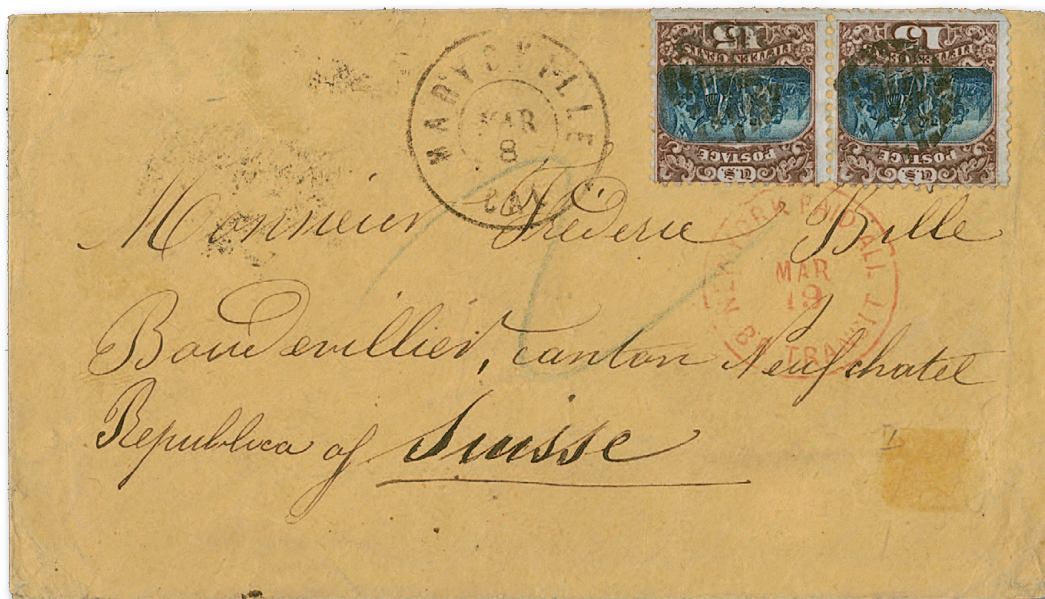 MARYSVILLE
MAR
8
CAL
15
FIFTEEN CENTS
U.S. POSTAGE
15
FIFTEEN CENTS
U.S. POSTAGE
NEW YORK PAID ALL
MAR
19
BR. TRANSIT
2
Monsieur Fréderic Bille
Boudevillier, canton Neufchatel
Republica of Suisse